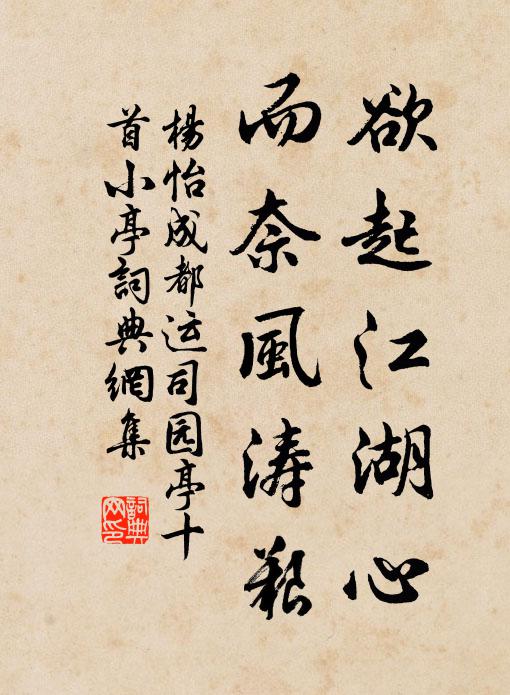 欲起江湖心
而奈風濤艱
楊怡成都运司园亭十
首小亭詞典網集
詞典
网印